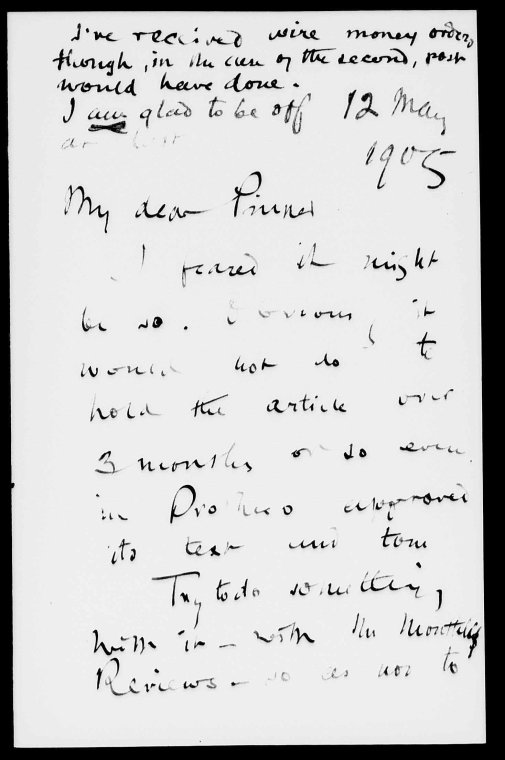 I've received wire money orders
though, in the case of the second, post
would have done.
I am glad to be off
at last
12 May
1905
My dear Pinker
I feared it might
be so. Obviously it
would not do to
hold the article over
3 months or so even
in Prothero approved
its text and tone
Try to do something
with it – with the Monthly
Reviews – so as not to